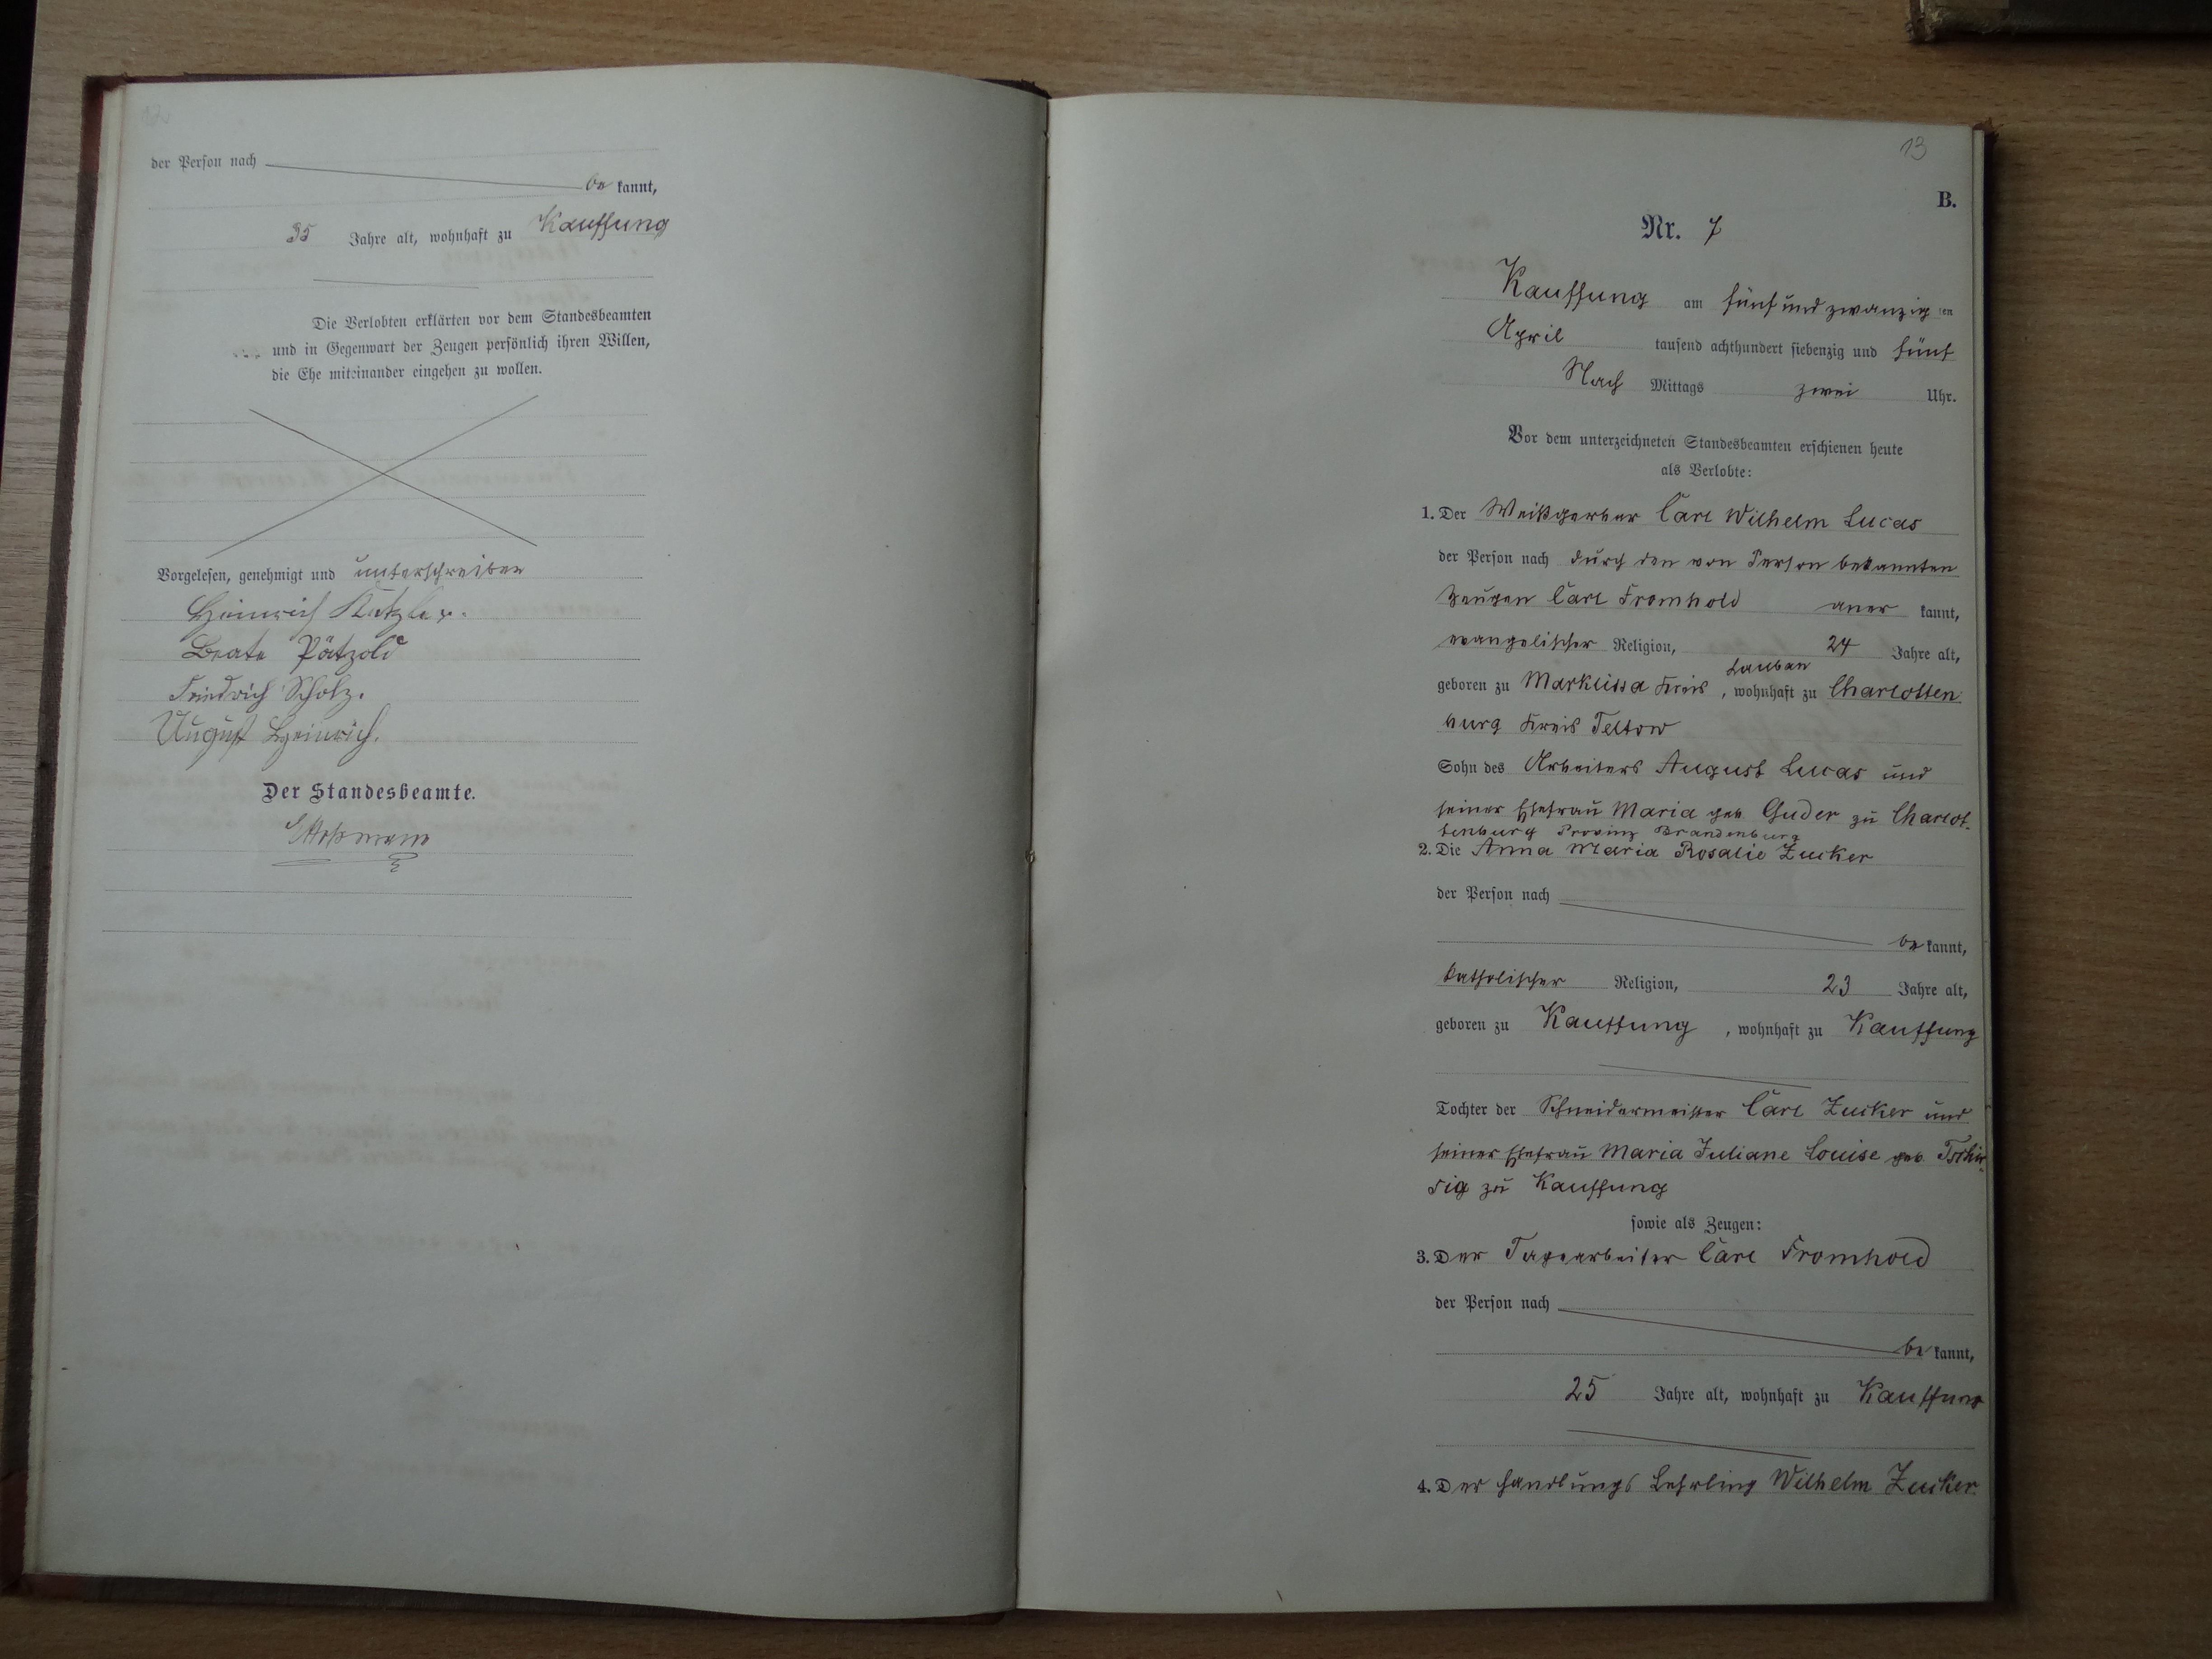 12
der Person nach
be kannt,
35 Jahre alt, wohnhaft zu Kauffung
Die Verlobten erklärten vor dem Standesbeamten
und in Gegenwart der Zeugen persönlich ihren Willen,
die Ehe miteinander eingehen zu wollen.
Vorgelesen, genehmigt und unterschreiben
Heinrich
Beate Pätzold
Friedrich Scholz.
August Heinrich.
Der Standesbeamte.
13
B.
Nr. 7
Kauffung am fünf und zwanzig ten
April tausend achthundert siebenzig und fünf
Nach Mittags zwei Uhr.
Vor dem unterzeichneten Standesbeamten erschienen heute
als Verlobte:
1. Der Weißgerber Carl Wilhelm Lucas
der Person nach durch den von Person bekannten
Zeugen Carl Fromhold aner kannt,
evangelischer Religion, 24 Jahre alt,
Lauban
geboren zu Marklissa Kreis , wohnhaft zu Charlotten
burg Kreis Teltow
Sohn des Arbeiters August Lucas und
seiner Ehefrau Maria geb Guder zu Charlot-
tenburg Provinz Brandenburg
2. Die Anna Maria Rosalie Zucker
der Person nach
be kannt,
katholischer Religion, 23 Jahre alt,
geboren zu Kauffung , wohnhaft zu Kauffung
Tochter der Schneidermeister Carl Zucker und
seiner Ehefrau Maria Juliane Louise geb. Tschir-
sig zu Kauffung
sowie als Zeugen:
3. Der Tagearbeiter Carl Fromhold
der Person nach
be kannt,
25 Jahre alt, wohnhaft zu Kauffung
4. Der Handlungs Lehrling Wilhelm Zucker